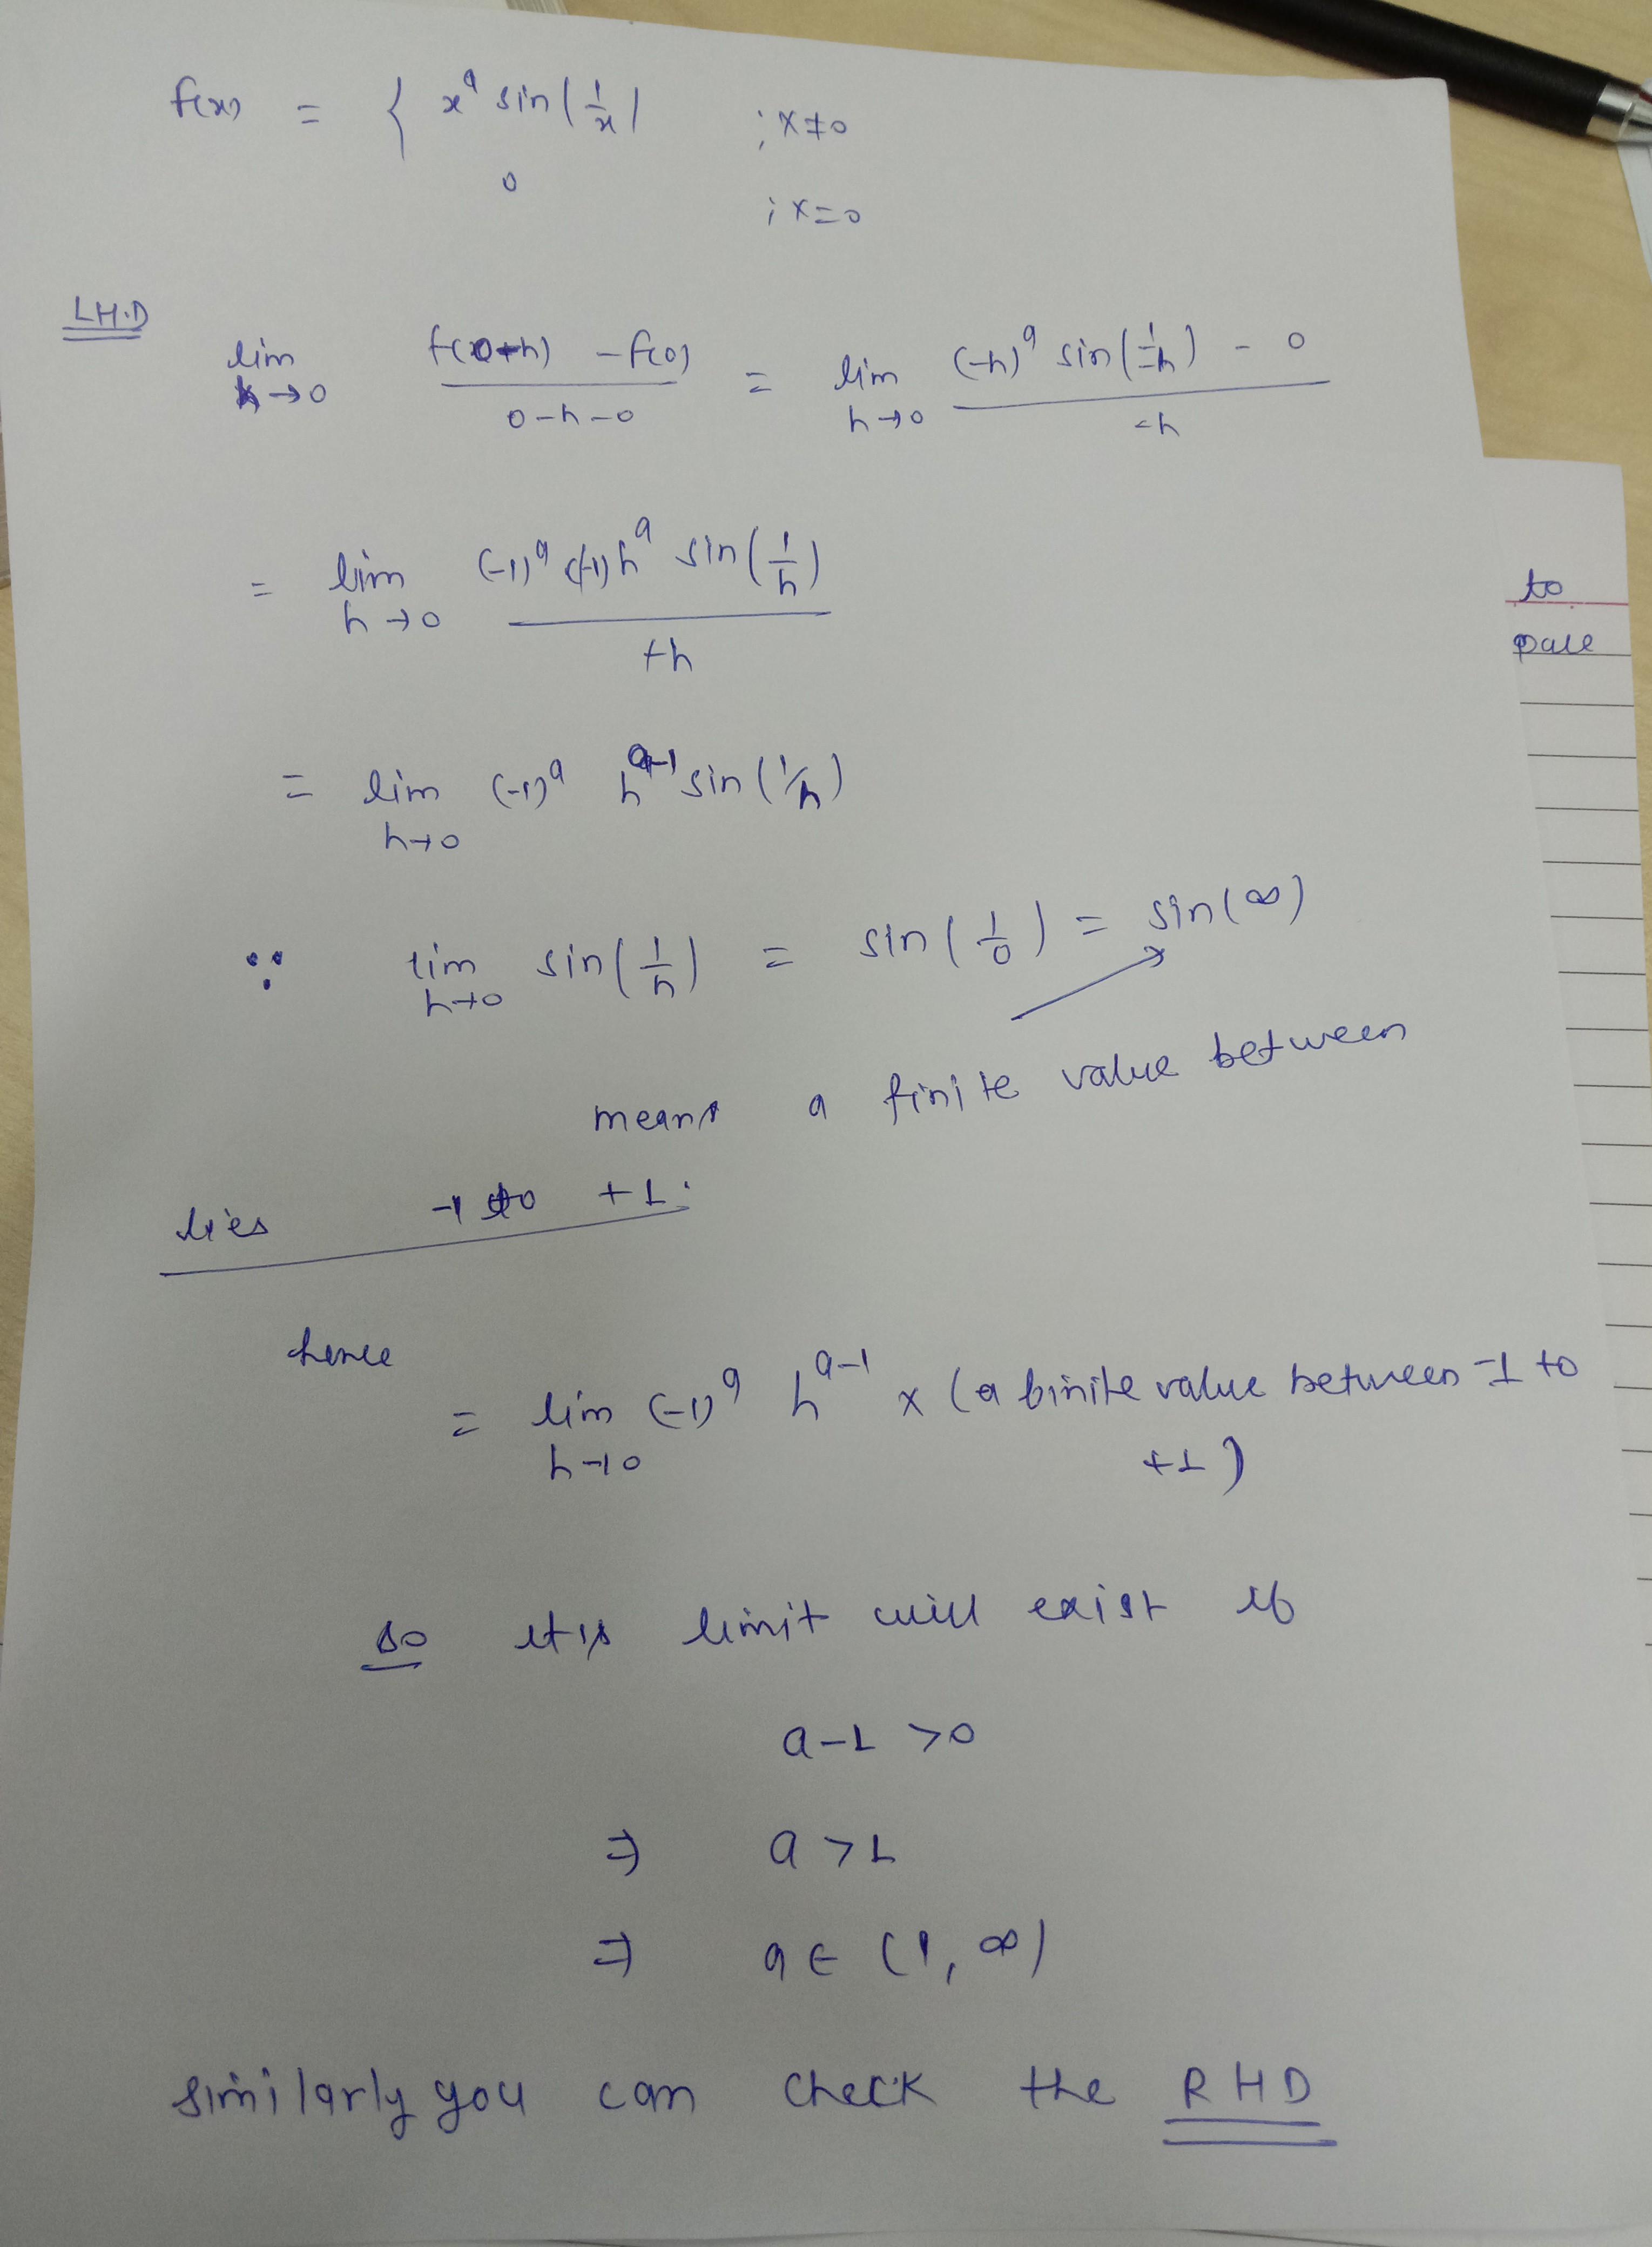 f(x) = { x^a sin(1/x) ; x≠0
0 ; x=0
LH.D
lim h→0 f(0-h) - f(0) / 0-h-0 = lim h→0 (-h)^a sin(1/-h) - 0 / -h
= lim h→0 (-1)^a (-1) h^a sin(1/h) / +h
= lim h→0 (-1)^a h^(a-1) sin(1/h)
∵ lim h→0 sin(1/h) = sin(1/0) = sin(∞)
means a finite value between
lies -1 to +1.
hence
= lim h→0 (-1)^a h^(a-1) × (a finite value between -1 to
+1)
so limit will exist if
a-1 >0
⇒ a >1
⇒ a ∈ (1, ∞)
similarly you can check the RHD
to